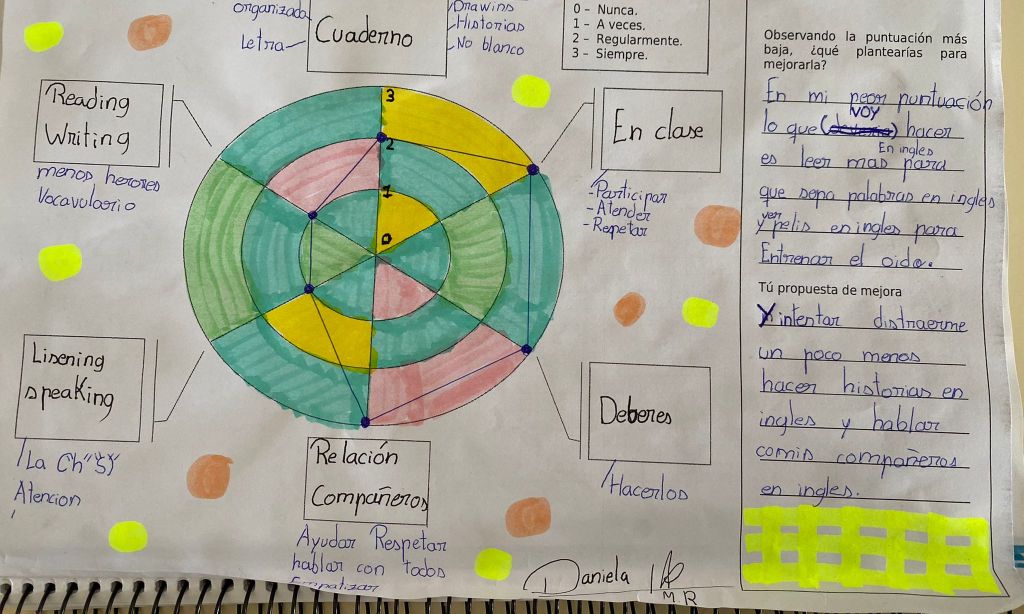 organizada
Letra
Cuaderno
Drawins
Historias
No blanco
0 - Nunca.
1 - A veces.
2 - Regularmente.
3 - Siempre.
Reading
Writing
menos herores
Vocavulario
3
2
1
0
En clase
-Participar
-Atender
-Repetar
Lisening
speaking
La Ch"S"
Atencion
Relación
Compañeros
Ayudar Respetar
hablar con todos
Empatizar
Deberes
Hacerlos
Daniela
M.R
Observando la puntuación más
baja, ¿qué plantearías para
mejorarla?
En mi peor puntuación
voy
lo que hacer
En ingles
es leer mas para
que sepa palabras en ingles
ver
y pelis en ingles para
Entrenar el oido.
Tú propuesta de mejora
intentar distraerme
un poco menos
hacer historias en
ingles y hablar
comis compañeros
en ingles.